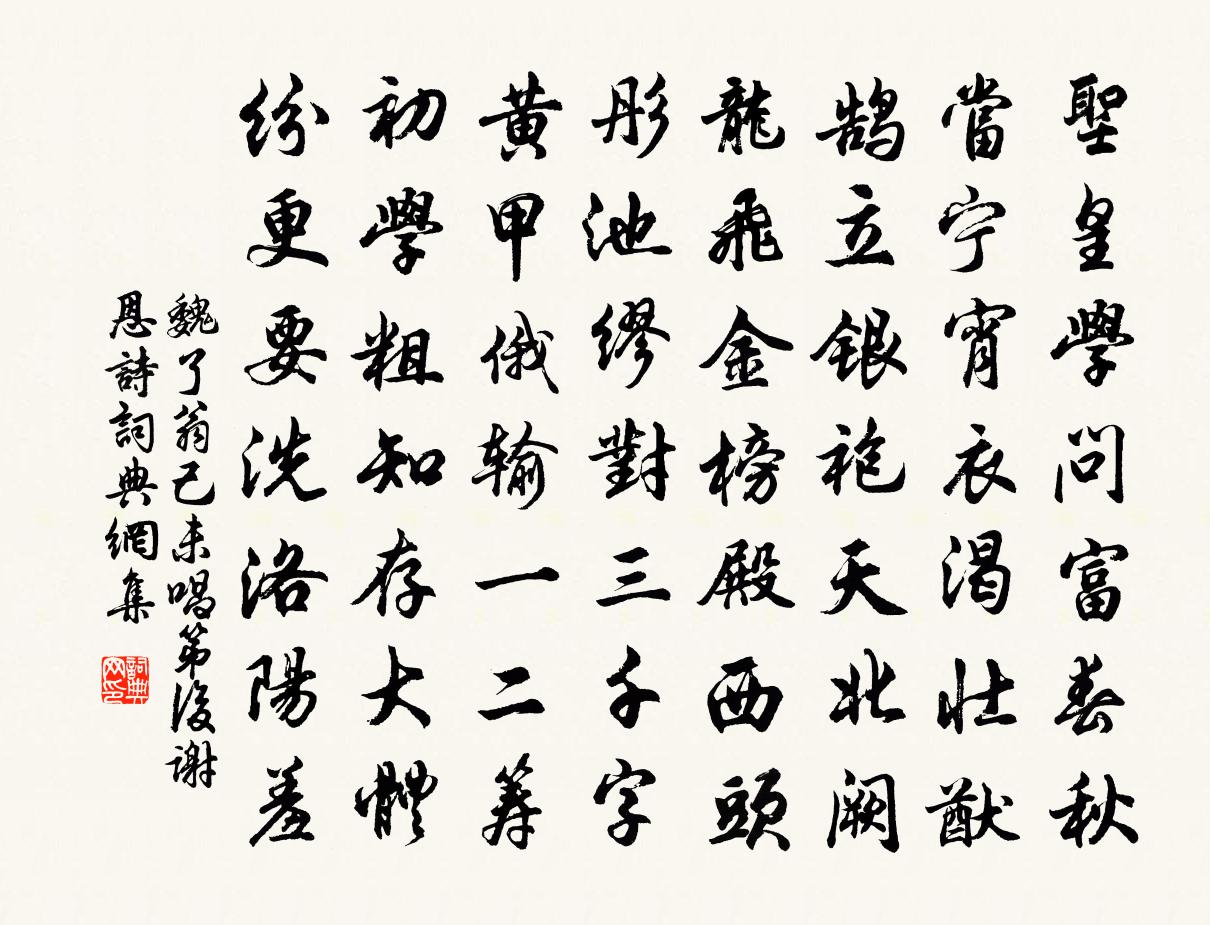 聖皇學問富春秋
當宁宵衣渴壯猷
鹄立銀袍天北阙
龍飛金榜殿西頭
彤池缪對三千字
黄甲俄输一二筹
初學粗知存大體
纷更要洗洛陽羞
魏了翁己未唱第後謝
恩詩詞典網集
詞典网印